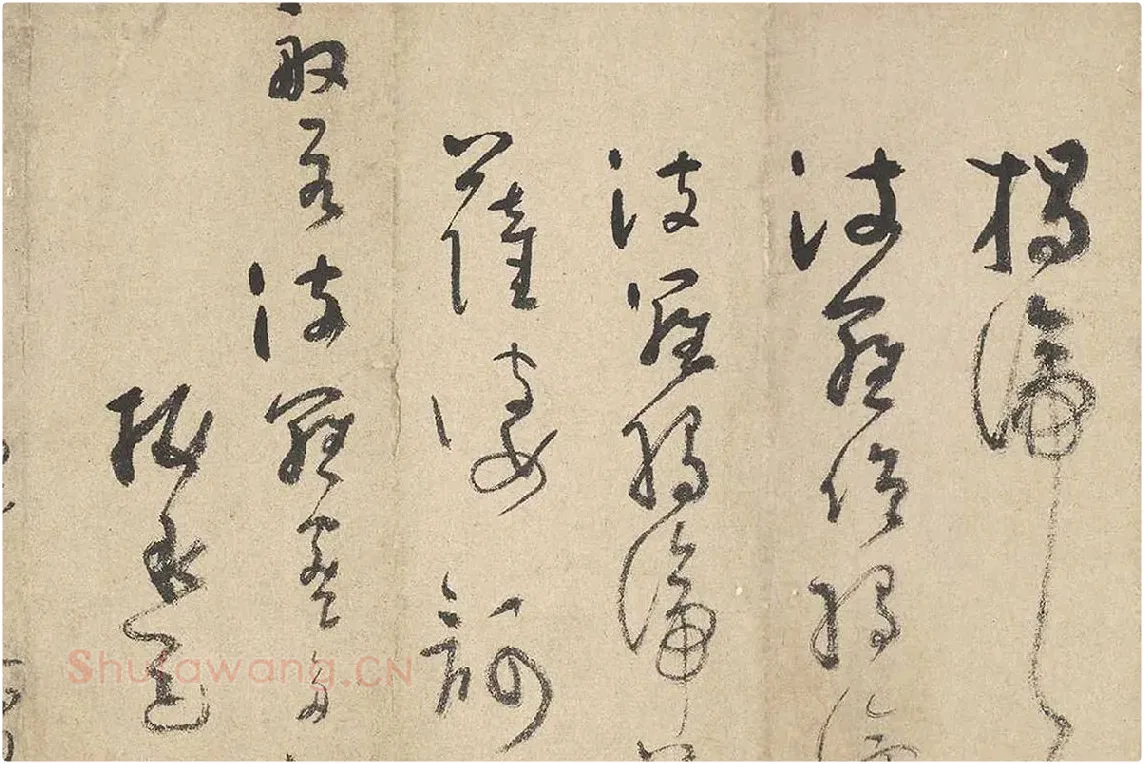 揭諦
波羅僧揭諦
波羅揭諦
薩婆訶
般若波羅蜜多
Shufawang.CN